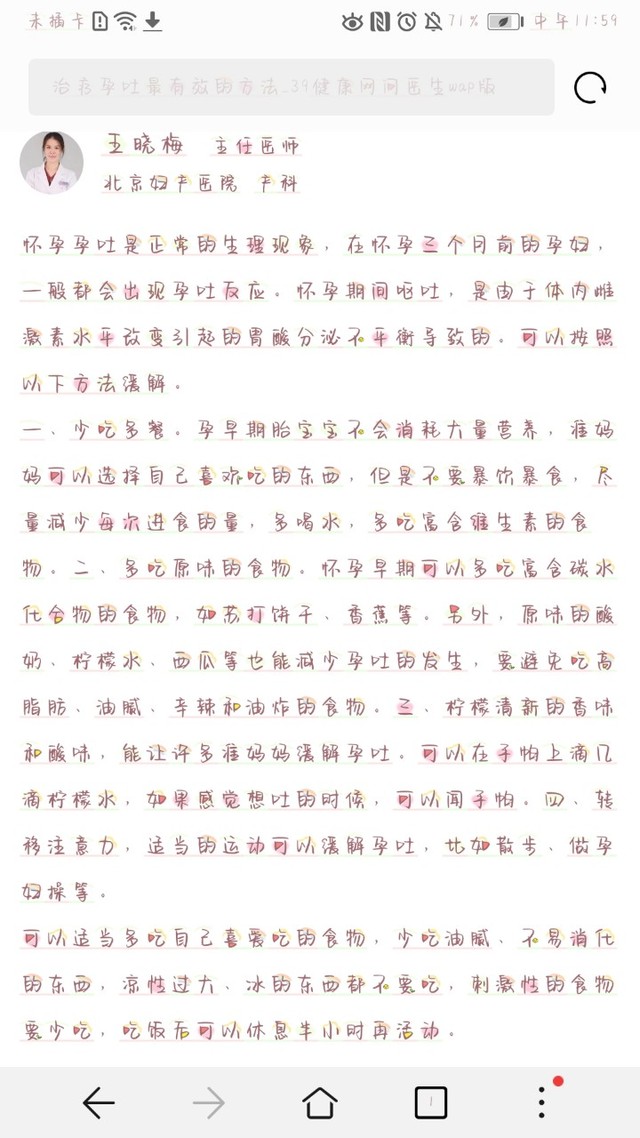 未插卡 71% 中午11:59
治疗孕吐最有效的方法_39健康网问医生wap版
王晓梅 主任医师
北京妇产医院 产科
怀孕孕吐是正常的生理现象，在怀孕三个月前的孕妇，
一般都会出现孕吐反应。怀孕期间呕吐，是由于体内雌
激素水平改变引起的胃酸分泌不平衡导致的。可以按照
以下方法缓解。
一、少吃多餐。孕早期胎宝宝不会消耗大量营养，准妈
妈可以选择自己喜欢吃的东西，但是不要暴饮暴食，尽
量减少每次进食的量，多喝水，多吃富含维生素的食
物。二、多吃原味的食物。怀孕早期可以多吃富含碳水
化合物的食物，如苏打饼干、香蕉等。另外，原味的酸
奶、柠檬水、西瓜等也能减少孕吐的发生，要避免吃高
脂肪、油腻、辛辣和油炸的食物。三、柠檬清新的香味
和酸味，能让许多准妈妈缓解孕吐。可以在手帕上滴几
滴柠檬水，如果感觉想吐的时候，可以闻手帕。四、转
移注意力，适当的运动可以缓解孕吐，比如散步、做孕
妇操等。
可以适当多吃自己喜爱吃的食物，少吃油腻、不易消化
的东西，凉性过大、冰的东西都不要吃，刺激性的食物
要少吃，吃饭后可以休息半小时再活动。
1